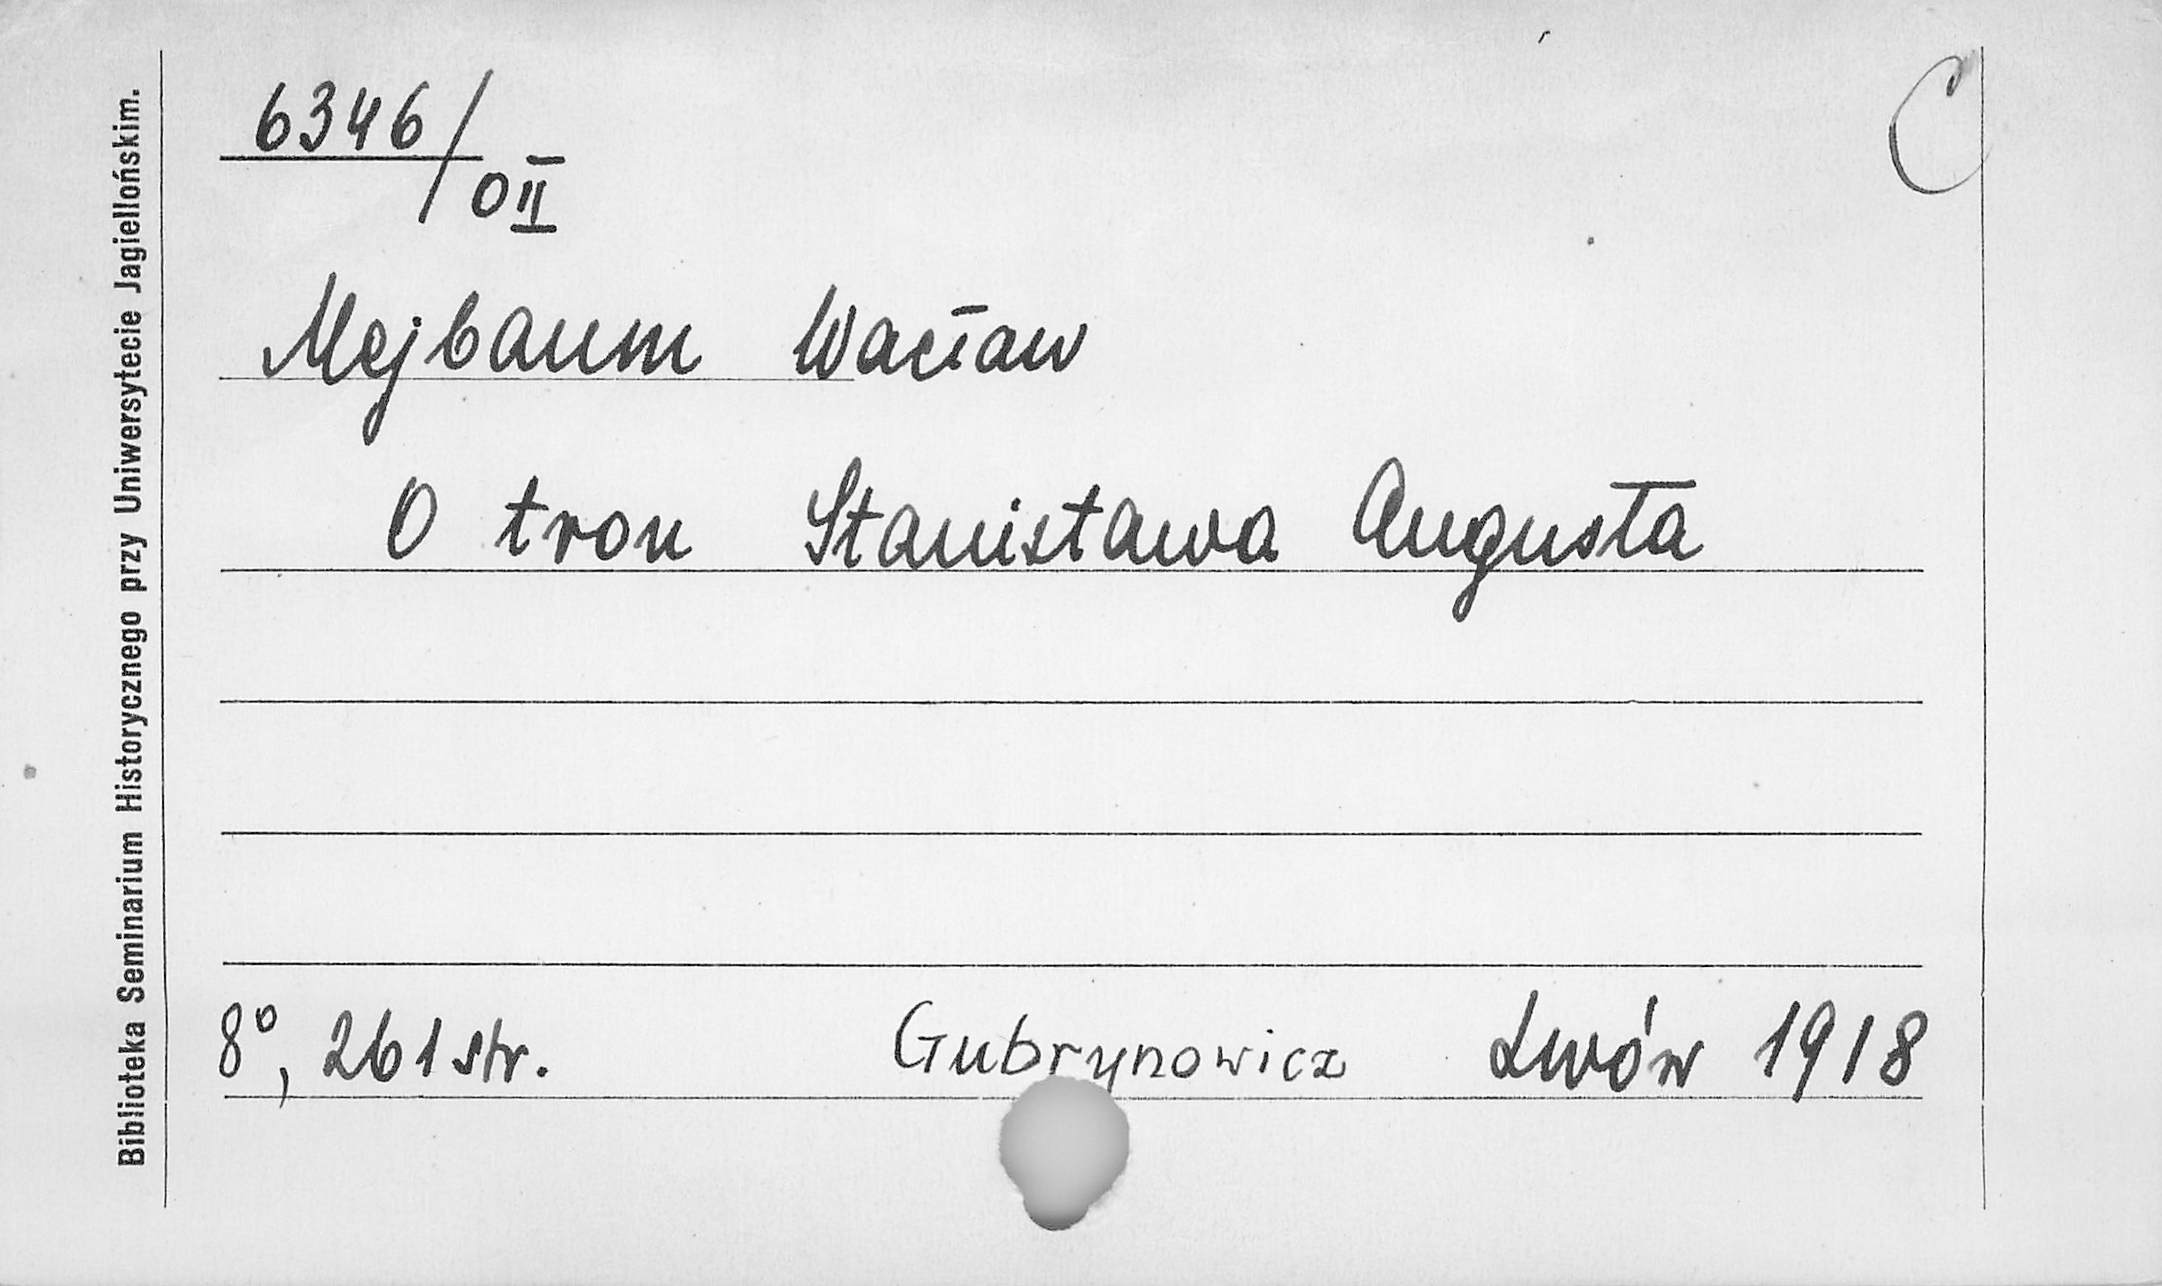 C
6346/OII
Mejbaum Wacław
O tron Stanisława Augusta
8°, 261 str. Gubrynowicz Lwów 1918
Biblioteka Seminarium Historycznego przy Uniwersytecie Jagiellońskim.